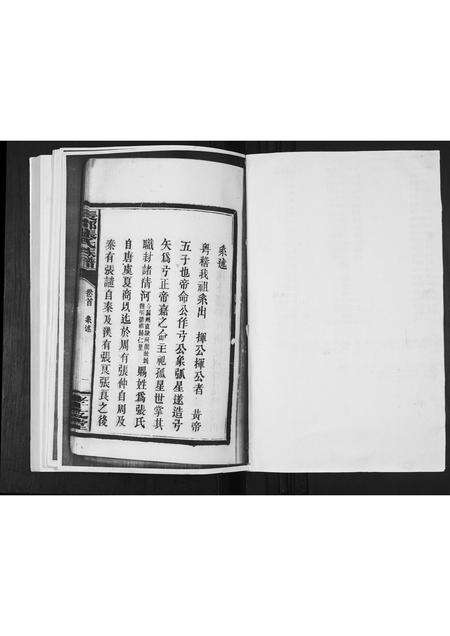 系述
粤稽我祖系出 揮公揮公者 黃帝
五子也帝命公作弓公象弧星遂造弓
矢爲弓正帝嘉之命主祀孤星世掌其
職封諸清河賜姓爲張氏
自唐虞夏商以迄於周有張仲自周及
秦有張譴自秦及漢有張良張良之後
卷首 系述